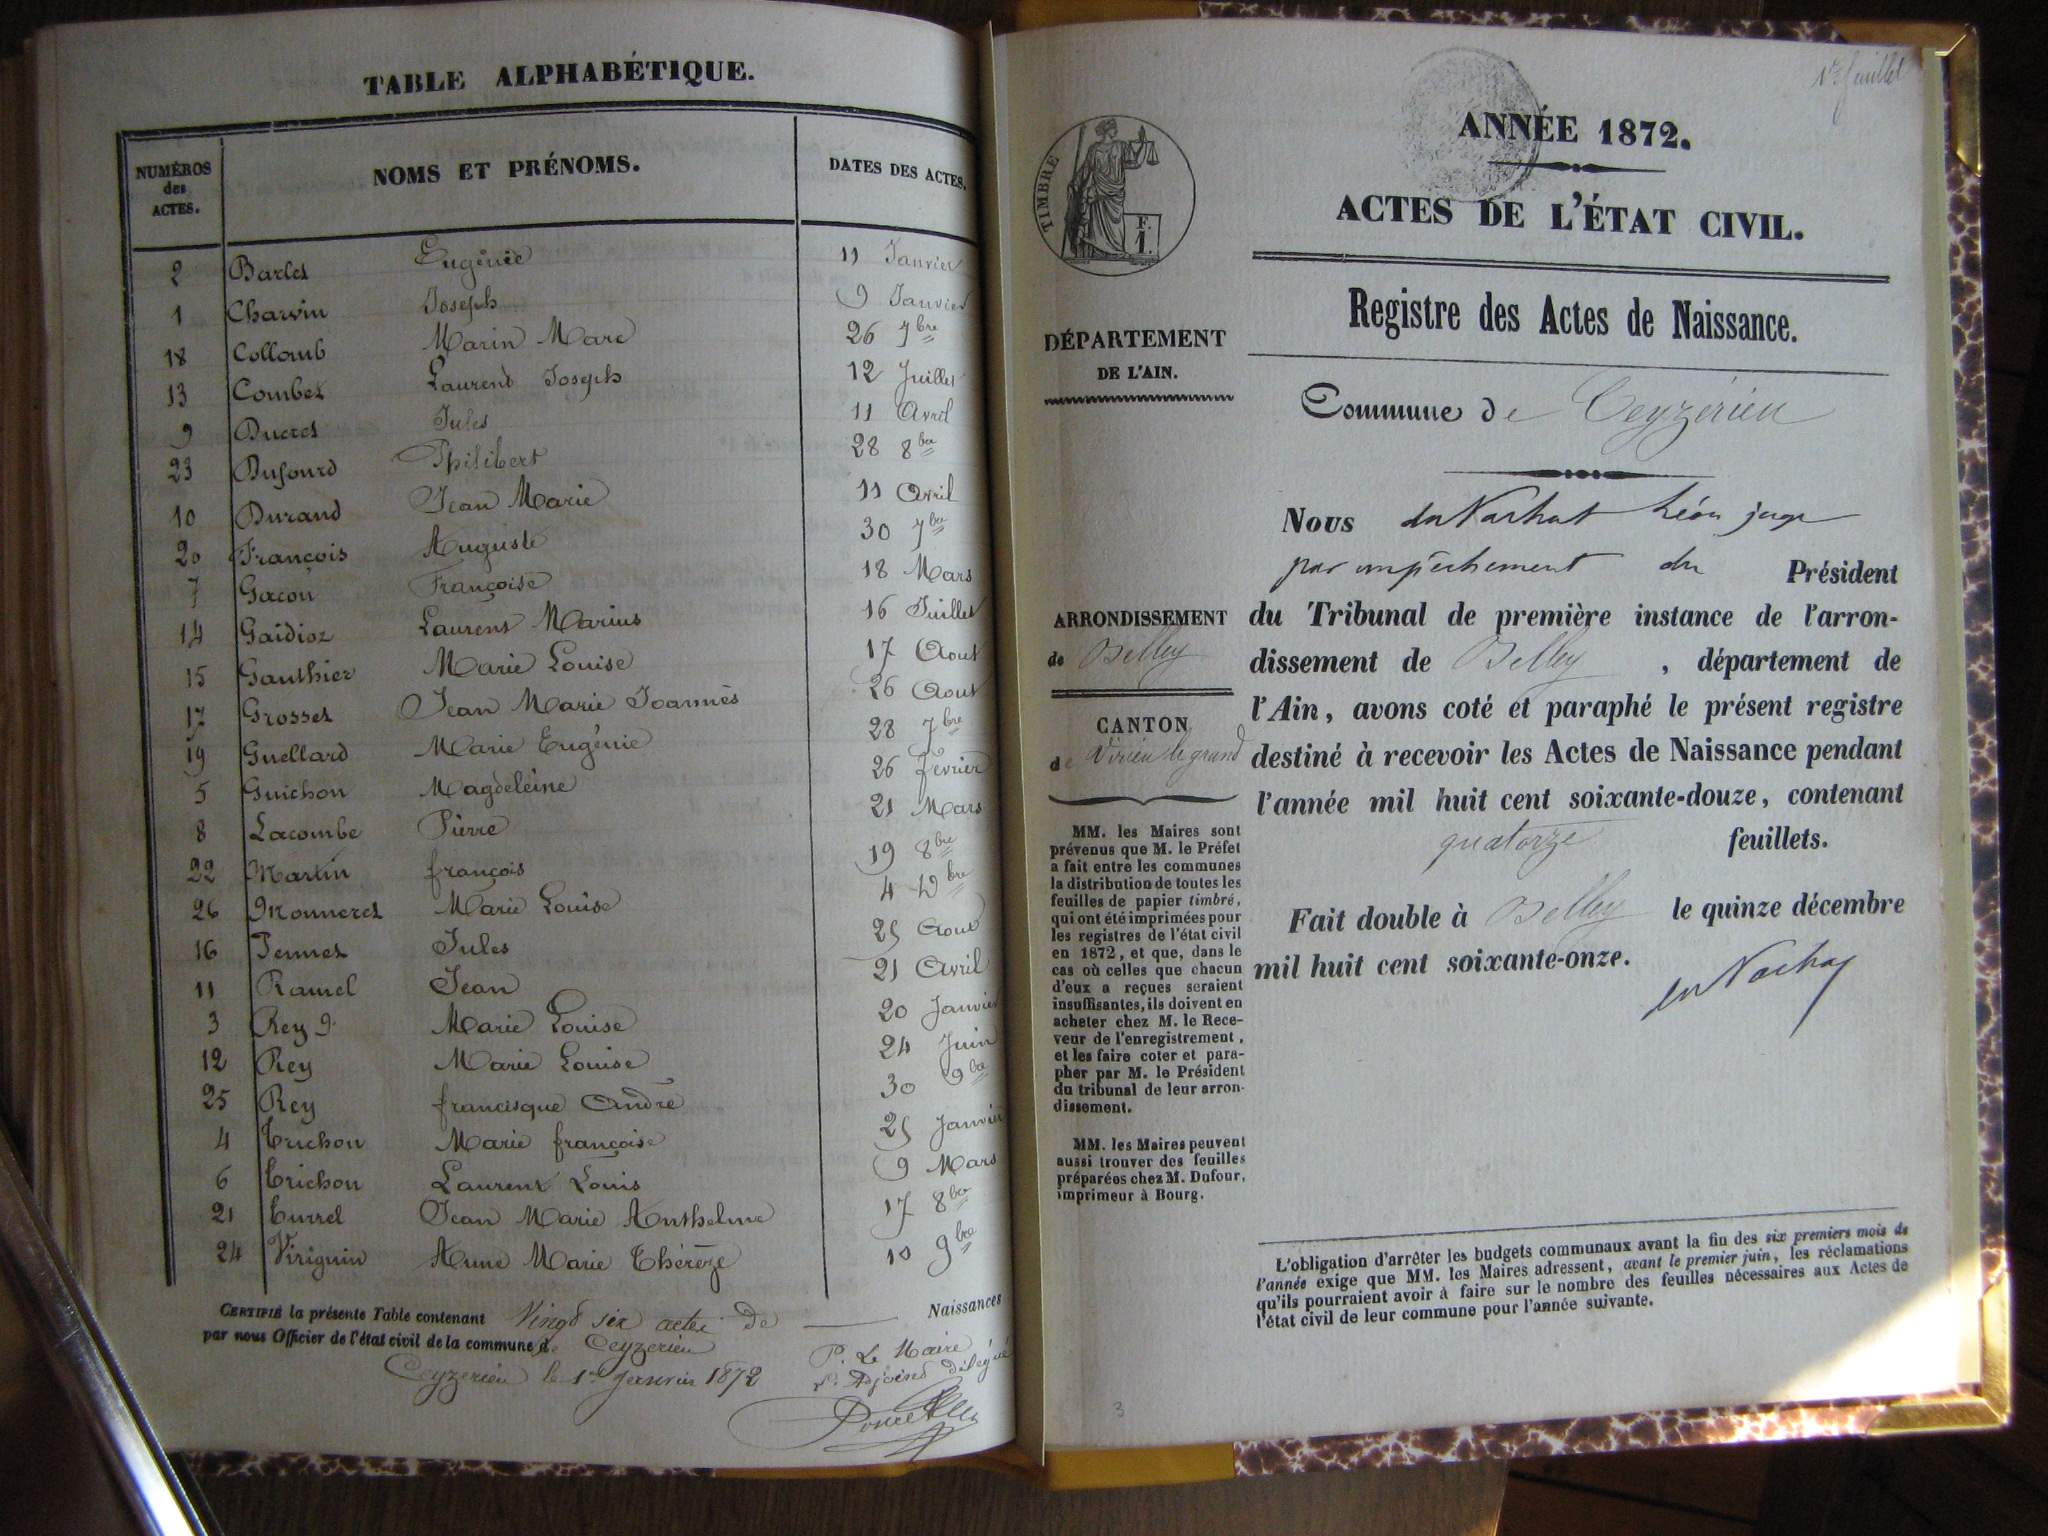 TABLE ALPHABÉTIQUE.
NUMÉROS des ACTES. NOMS ET PRÉNOMS. DATES DES ACTES.
2 Barlet Eugénie 11 Janvier
1 Charvin Joseph 9 Janvier
18 Collomb Marin Marc 26 7bre
13 Combet Laurent Joseph 12 Juillet
9 Ducret Jules 11 Avril
23 Dufourd Philibert 28 8bre
10 Durand Jean Marie 11 Avril
20 François Auguste 30 7bre
7 Gacon Françoise 18 Mars
14 Gaidioz Laurent Marius 16 Juillet
15 Gauthier Marie Louise 17 Aout
17 Grosset Jean Marie Joannès 26 Aout
19 Guellard Marie Eugénie 28 7bre
5 Guichon Magdeleine 26 Fevrier
8 Lacombe Pierre 21 Mars
22 Martin françois 19 8bre
26 Monneret Marie Louise 4 Dbre
16 Pennet Jules 25 Aout
11 Ramel Jean 21 Avril
3 Rey Marie Louise 20 Janvier
12 Rey Marie Louise 24 Juin
25 Rey francisque André 30 9bre
4 Trichon Marie françoise 25 Janvier
6 Trichon Laurent Louis 9 Mars
21 Turrel Jean Marie Anthelme 17 8bre
24 Viriguin Anne Marie Thérèze 10 9bre
CERTIFIÉ la présente Table contenant Vingt six actes de Naissances
par nous Officier de l'état civil de la commune de Ceyzerieu
Ceyzerieu le 1er Janvier 1872
P. Le Maire
L. Adjoint délégué
1er feuillet
ANNÉE 1872.
ACTES DE L'ÉTAT CIVIL.
TIMBRE
F.
1.
Registre des Actes de Naissance.
DÉPARTEMENT
DE L'AIN.
Commune de Ceyzérieu
Nous Léon juge
par empêchement du Président
du Tribunal de première instance de l'arron-
dissement de Belley, département de
l'Ain, avons coté et paraphé le présent registre
destiné à recevoir les Actes de Naissance pendant
l'année mil huit cent soixante-douze, contenant
quatorze feuillets.
Fait double à Belley le quinze décembre
mil huit cent soixante-onze.
ARRONDISSEMENT
de Belley
CANTON
de Virieu le grand
MM. les Maires sont
prévenus que M. le Préfet
a fait entre les communes
la distribution de toutes les
feuilles de papier timbré,
qui ont été imprimées pour
les registres de l'état civil
en 1872, et que, dans le
cas où celles que chacun
d'eux a reçues seraient
insuffisantes, ils doivent en
acheter chez M. le Rece-
veur de l'enregistrement,
et les faire coter et para-
pher par M. le Président
du tribunal de leur arron-
dissement.
MM. les Maires peuvent
aussi trouver des feuilles
préparées chez M. Dufour,
imprimeur à Bourg.
L'obligation d'arrêter les budgets communaux avant la fin des six premiers mois de
l'année exige que MM. les Maires adressent, avant le premier juin, les réclamations
qu'ils pourraient avoir à faire sur le nombre des feuilles nécessaires aux Actes de
l'état civil de leur commune pour l'année suivante.
3